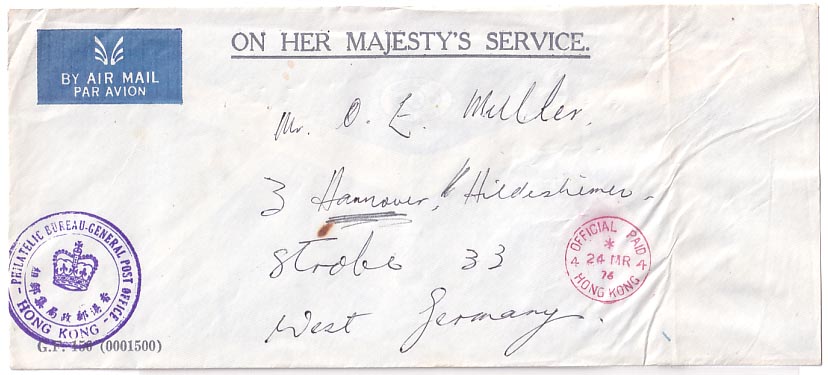 ON HER MAJESTY'S SERVICE.
BY AIR MAIL
PAR AVION
Mr. O. E. Muller,
3 Hannover, Hildesheimer-
Strabe 33
West Germany.
OFFICIAL PAID
*
4 24 MR 4
76
HONG KONG
- PHILATELIC BUREAU-GENERAL POST OFFICE -
香港郵政局集郵組
HONG KONG
G.F. 156 (0001500)